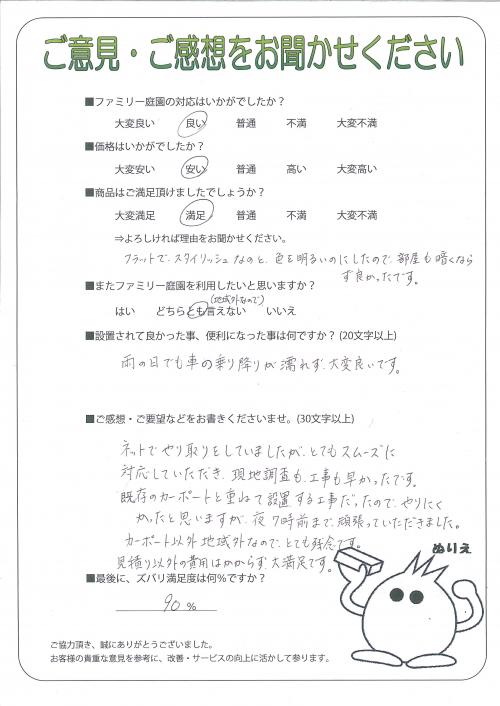 ご意見・ご感想をお聞かせください
■ファミリー庭園の対応はいかがでしたか？
大変良い　良い　普通　不満　大変不満
■価格はいかがでしたか？
大変安い　安い　普通　高い　大変高い
■商品はご満足頂けましたでしょうか？
大変満足　満足　普通　不満　大変不満
⇒よろしければ理由をお聞かせください。
フラットで、スタイリッシュなのと、色を明るいのにしたので、部屋も暗くなら
ず良かったです。
■またファミリー庭園を利用したいと思いますか？
（地域外なので）
はい　どちらとも言えない　いいえ
■設置されて良かった事、便利になった事は何ですか？(20文字以上)
雨の日でも車の乗り降りが濡れず、大変良いです。
■ご感想・ご要望などをお書きくださいませ。(30文字以上)
ネットでやり取りをしていましたが、とてもスムーズに
対応していただき、現地調査も、工事も早かったです。
既存のカーポートと重ねて設置する工事だったので、やりにく
かったと思いますが、夜7時前まで、頑張っていただきました。
カーポート以外地域外なので、とても残念です。
見積り以外の費用はかからず、大満足です。
ぬりえ
■最後に、ズバリ満足度は何％ですか？
90 %
ご協力頂き、誠にありがとうございました。
お客様の貴重な意見を参考に、改善・サービスの向上に活かして参ります。